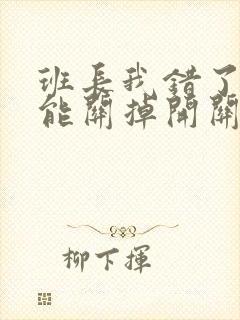 班長我錯了
能關掉開關
柳下揮